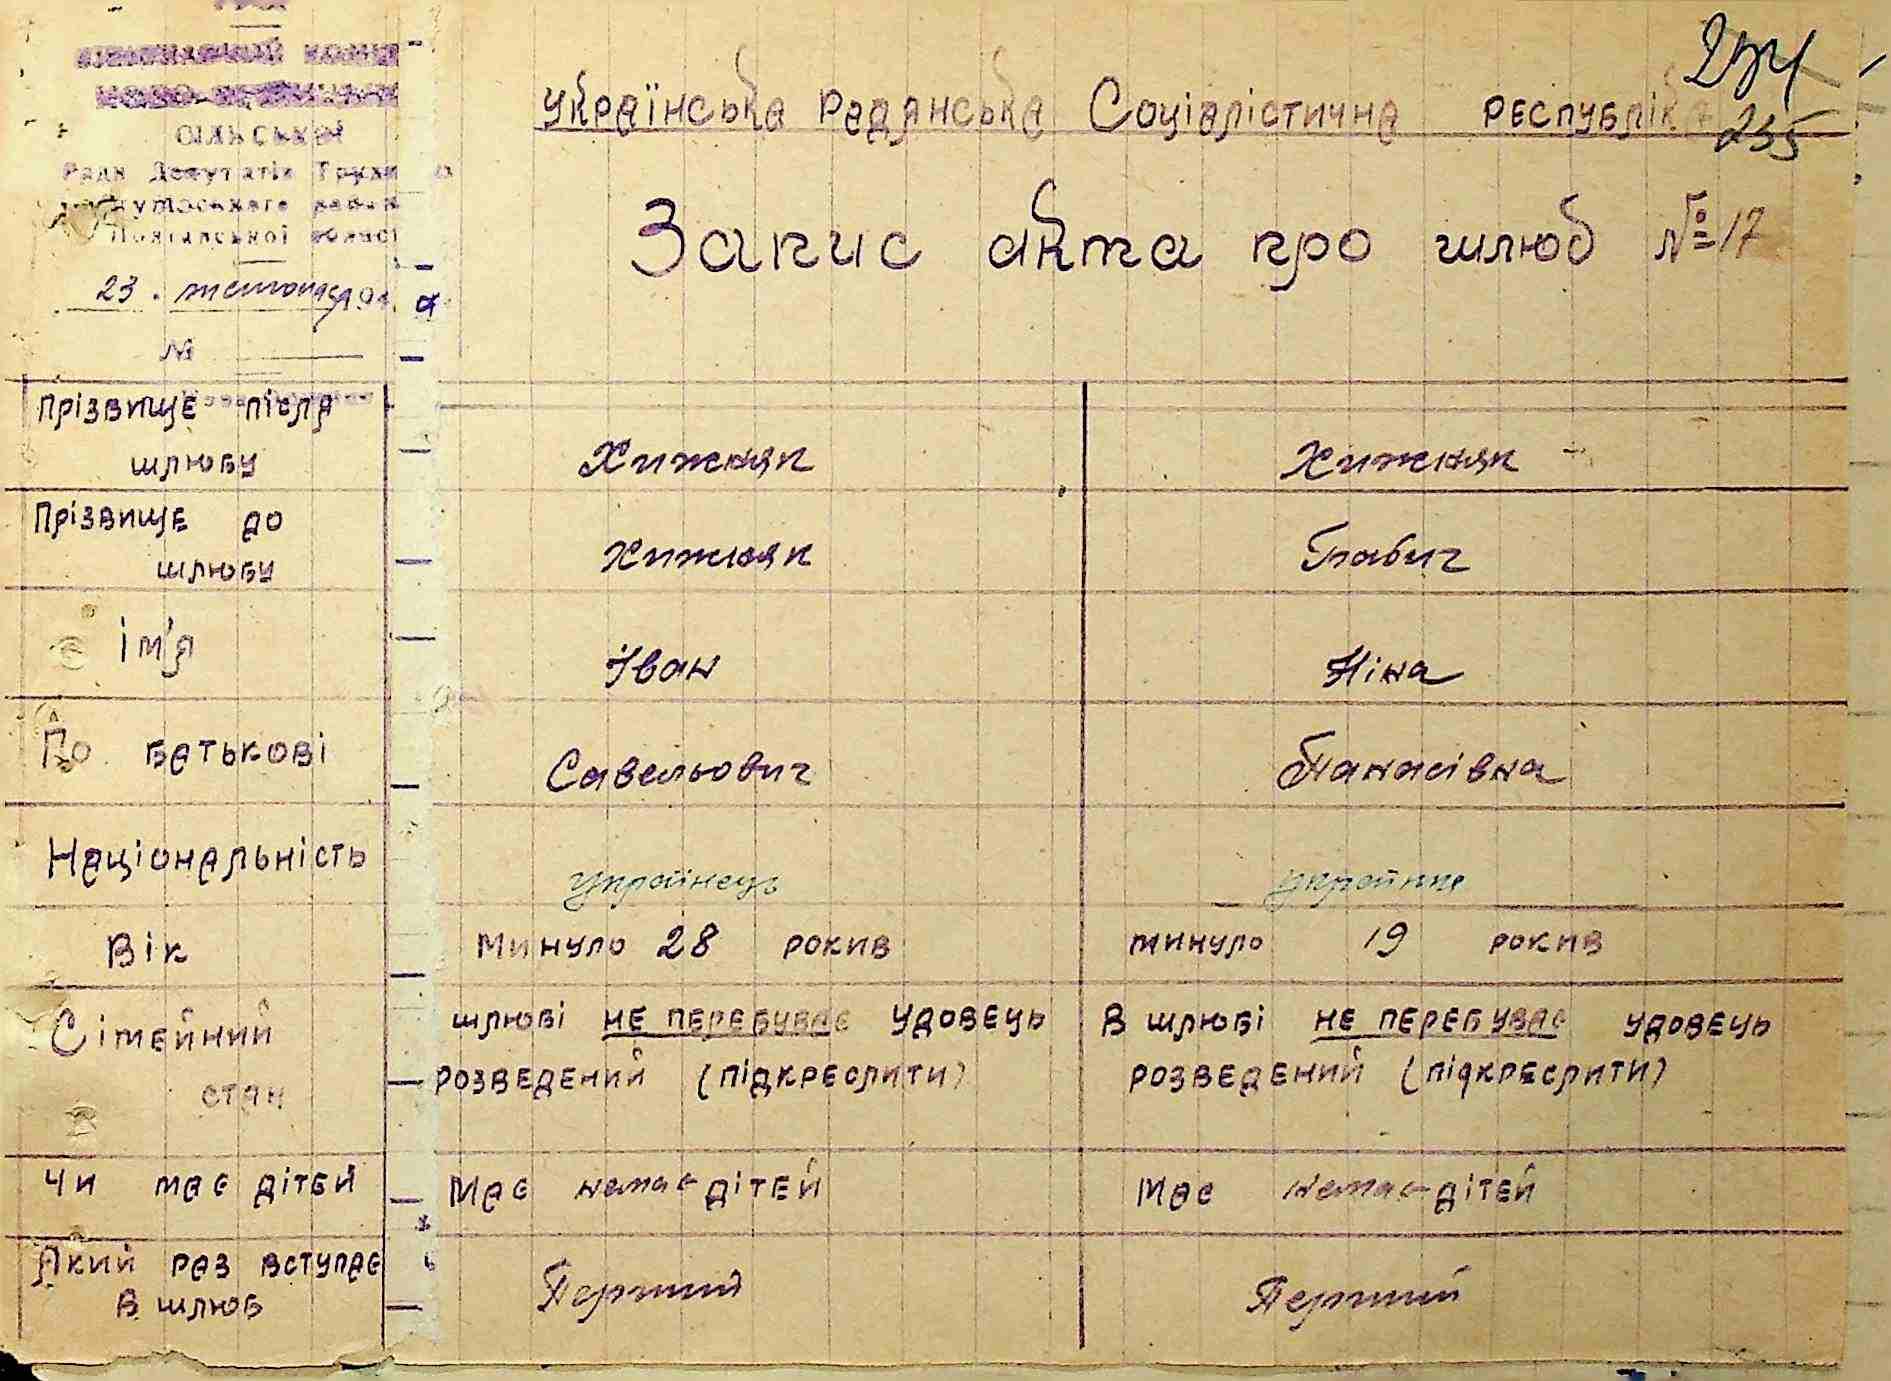 сільської
Ради Депутатів Трудя
Полтавської област
23. листопада 194
№
234
235
Українська Радянська Соціалістична республіка
Запис акта про шлюб №17
Прізвище після шлюбу Хижняк Хижняк
Прізвище до шлюбу Хижняк Грабич
Ім'я Іван Ніна
По батькові Савельович Панасівна
Національність українець українка
Вік минуло 28 рокив минуло 19 рокив
Сімейний стан шлюбі не перебуває удовець В шлюбі не перебуває удовець
розведений (підкреслити) розведений (підкреслити)
Чи має дітей Має немає дітей Має немає дітей
Який раз вступає в шлюб Перший Перший